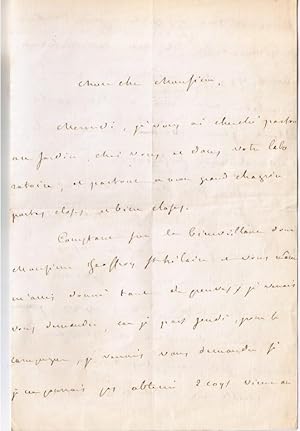 Mon cher Monsieur,
Mercredi, je vous ai cherché partout
au jardin, chez vous, et dans votre labo
ratoire, et partout a mon grand chagrin
portes closes et bien closes.
Comptant sur la bienveillance dont
Monsieur Geoffroy St hilaire et vous même
m'avez donné tant de preuves, je venais
vous demander, car je pars jeudi, pour la
campagne, je venais vous demander si
je ne pourrais pas obtenir 2 coqs